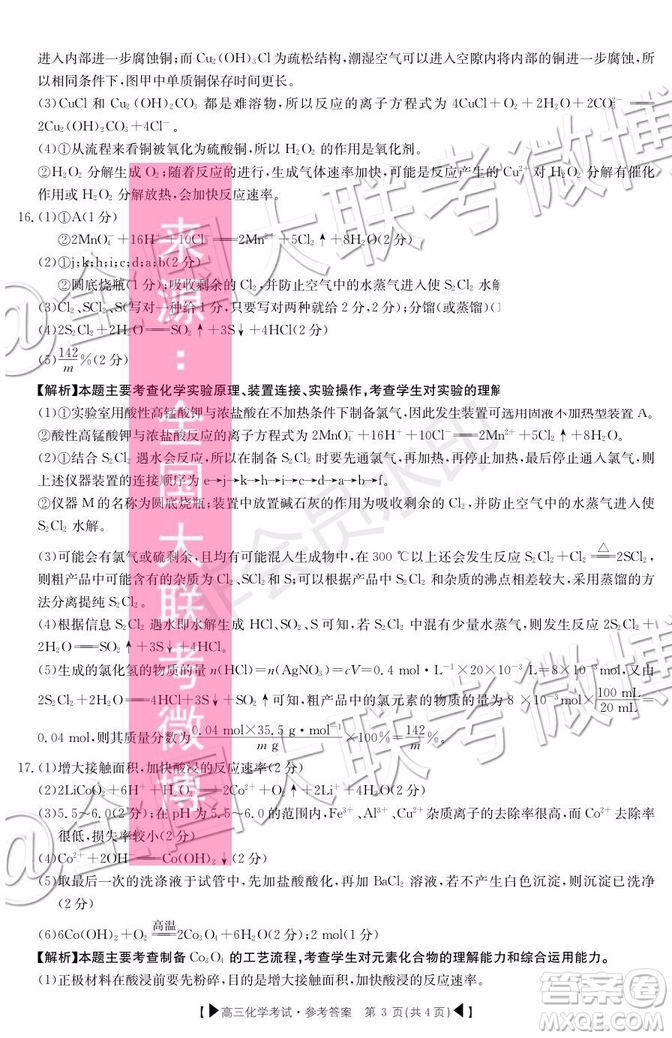 进入内部进一步腐蚀铜;而 Cu₂(OH)₃Cl 为疏松结构,潮湿空气可以进入空隙内将内部的铜进一步腐蚀,所
以相同条件下,图甲中单质铜保存时间更长。
(3)CuCl 和 Cu₂(OH)₂CO₃ 都是难溶物,所以反应的离子方程式为 4CuCl+O₂+2H₂O+2CO₃²⁻══
2Cu₂(OH)₂CO₃+4Cl⁻。
(4)①从流程来看铜被氧化为硫酸铜,所以 H₂O₂ 的作用是氧化剂。
②H₂O₂ 分解生成 O₂;随着反应的进行,生成气体速率加快,可能是反应产生的 Cu²⁺对 H₂O₂ 分解有催化
作用或 H₂O₂ 分解放热,会加快反应速率。
16.(1)①A(1分)
②2MnO₄⁻+16H⁺+10Cl⁻══2Mn²⁺+5Cl₂↑+8H₂O(2分)
(2)①j;k;h;i;c;d;a;b(2分)
②圆底烧瓶(1分);吸收剩余的 Cl₂,并防止空气中的水蒸气进入使 S₂Cl₂ 水解
(3)Cl₂、SCl₂、S(写对一种给1分,只要写对两个就给2分,2分);分馏(或蒸馏)(1
(4)2S₂Cl₂+2H₂O══SO₂↑+3S↓+4HCl(2分)
(5)142/m%(2分)
【解析】本题主要考查化学实验原理、装置连接、实验操作,考查学生对实验的理解
(1)①实验室用酸性高锰酸钾与浓盐酸在不加热条件下制备氯气,因此发生装置可选用固液不加热型装置A。
②酸性高锰酸钾与浓盐酸反应的离子方程式为 2MnO₄⁻+16H⁺+10Cl⁻══2Mn²⁺+5Cl₂↑+8H₂O。
(2)①结合 S₂Cl₂ 遇水会反应,所以在制备 S₂Cl₂ 时要先通氯气,再加热,再停止加热,最后停止通入氯气,则
上述仪器装置的连接顺序为 e→j→k→h→i→c→d→a→b→f。
②仪器 M 的名称为圆底烧瓶;装置中放置碱石灰的作用为吸收剩余的 Cl₂,并防止空气中的水蒸气进入使
S₂Cl₂ 水解。
(3)可能会有氯气或硫剩余,且均有可能混入生成物中,在 300 ℃以上时会发生反应 S₂Cl₂+Cl₂══△2SCl₂,
则粗产品中可能含有的杂质为 Cl₂、SCl₂和 S;可以利用产品与杂质的沸点相差较大,采用蒸馏的方
法分离提纯 S₂Cl₂。
(4)根据信息 S₂Cl₂ 遇水即水解生成 HCl、SO₂、S 可知,若 S₂Cl₂ 中混有水,会发生的反应为 2S₂Cl₂+
2H₂O══SO₂↑+3S↓+4HCl。
(5)生成的氯化氢的物质的量 n(HCl)=n(AgNO₃)=cV=0.4 mol·L⁻¹×20×10⁻³L=8×10⁻³mol,又由
2S₂Cl₂+2H₂O══4HCl+3S↓+SO₂↑可知,粗产品中的氯元素的物质的量为 8×10⁻³mol×100 mL/20 mL=
0.04 mol,则其质量分数为0.04 mol×35.5 g·mol⁻¹/m g×100%=142/m%。
17.(1)增大接触面积,加快酸浸的反应速率(2分)
(2)2LiCoO₂+6H⁺+H₂O₂══2Co²⁺+O₂↑+2Li⁺+4H₂O(2分)
(3)5.5~6.0(2分);在 pH 为 5.5~6.0 的范围内,Fe³⁺、Al³⁺、Cu²⁺杂质离子的去除率很高,而 Co 去除率
很低,损失率较小(2分)
(4)Co²⁺+2OH⁻══Co(OH)₂↓(2分)
(5)取最后一次的洗涤液于试管中,先加盐酸酸化,再加 BaCl₂ 溶液,若不产生白色沉淀,则沉淀已洗净
(2分)
(6)6Co(OH)₂+O₂══高温2Co₃O₄+6H₂O(2分);2 mol(1分)
【解析】本题主要考查制备 Co₃O₄ 的工艺流程,考查学生对元素化合物的理解能力和综合运用能力。
(1)正极材料在酸浸前要先粉碎,目的是增大接触面积,加快酸浸的反应速率。
【▶高三化学考试·参考答案 第 3 页(共 4 页)◀】
来源:全国大联考微博
@全国大联考微博
@全国大联考微博
非会员水印
答案圈